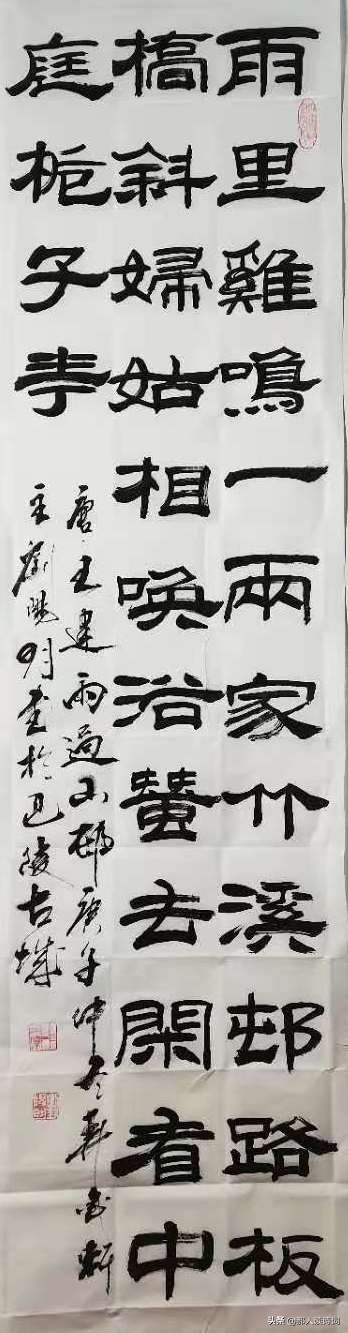 雨里雞鳴一兩家竹溪邨路板
橋斜婦姑相喚浴蠶去閑看中
庭栀子花
唐王建雨過山邨庚子仲冬軒
主劉明書於巴陵古城
头条